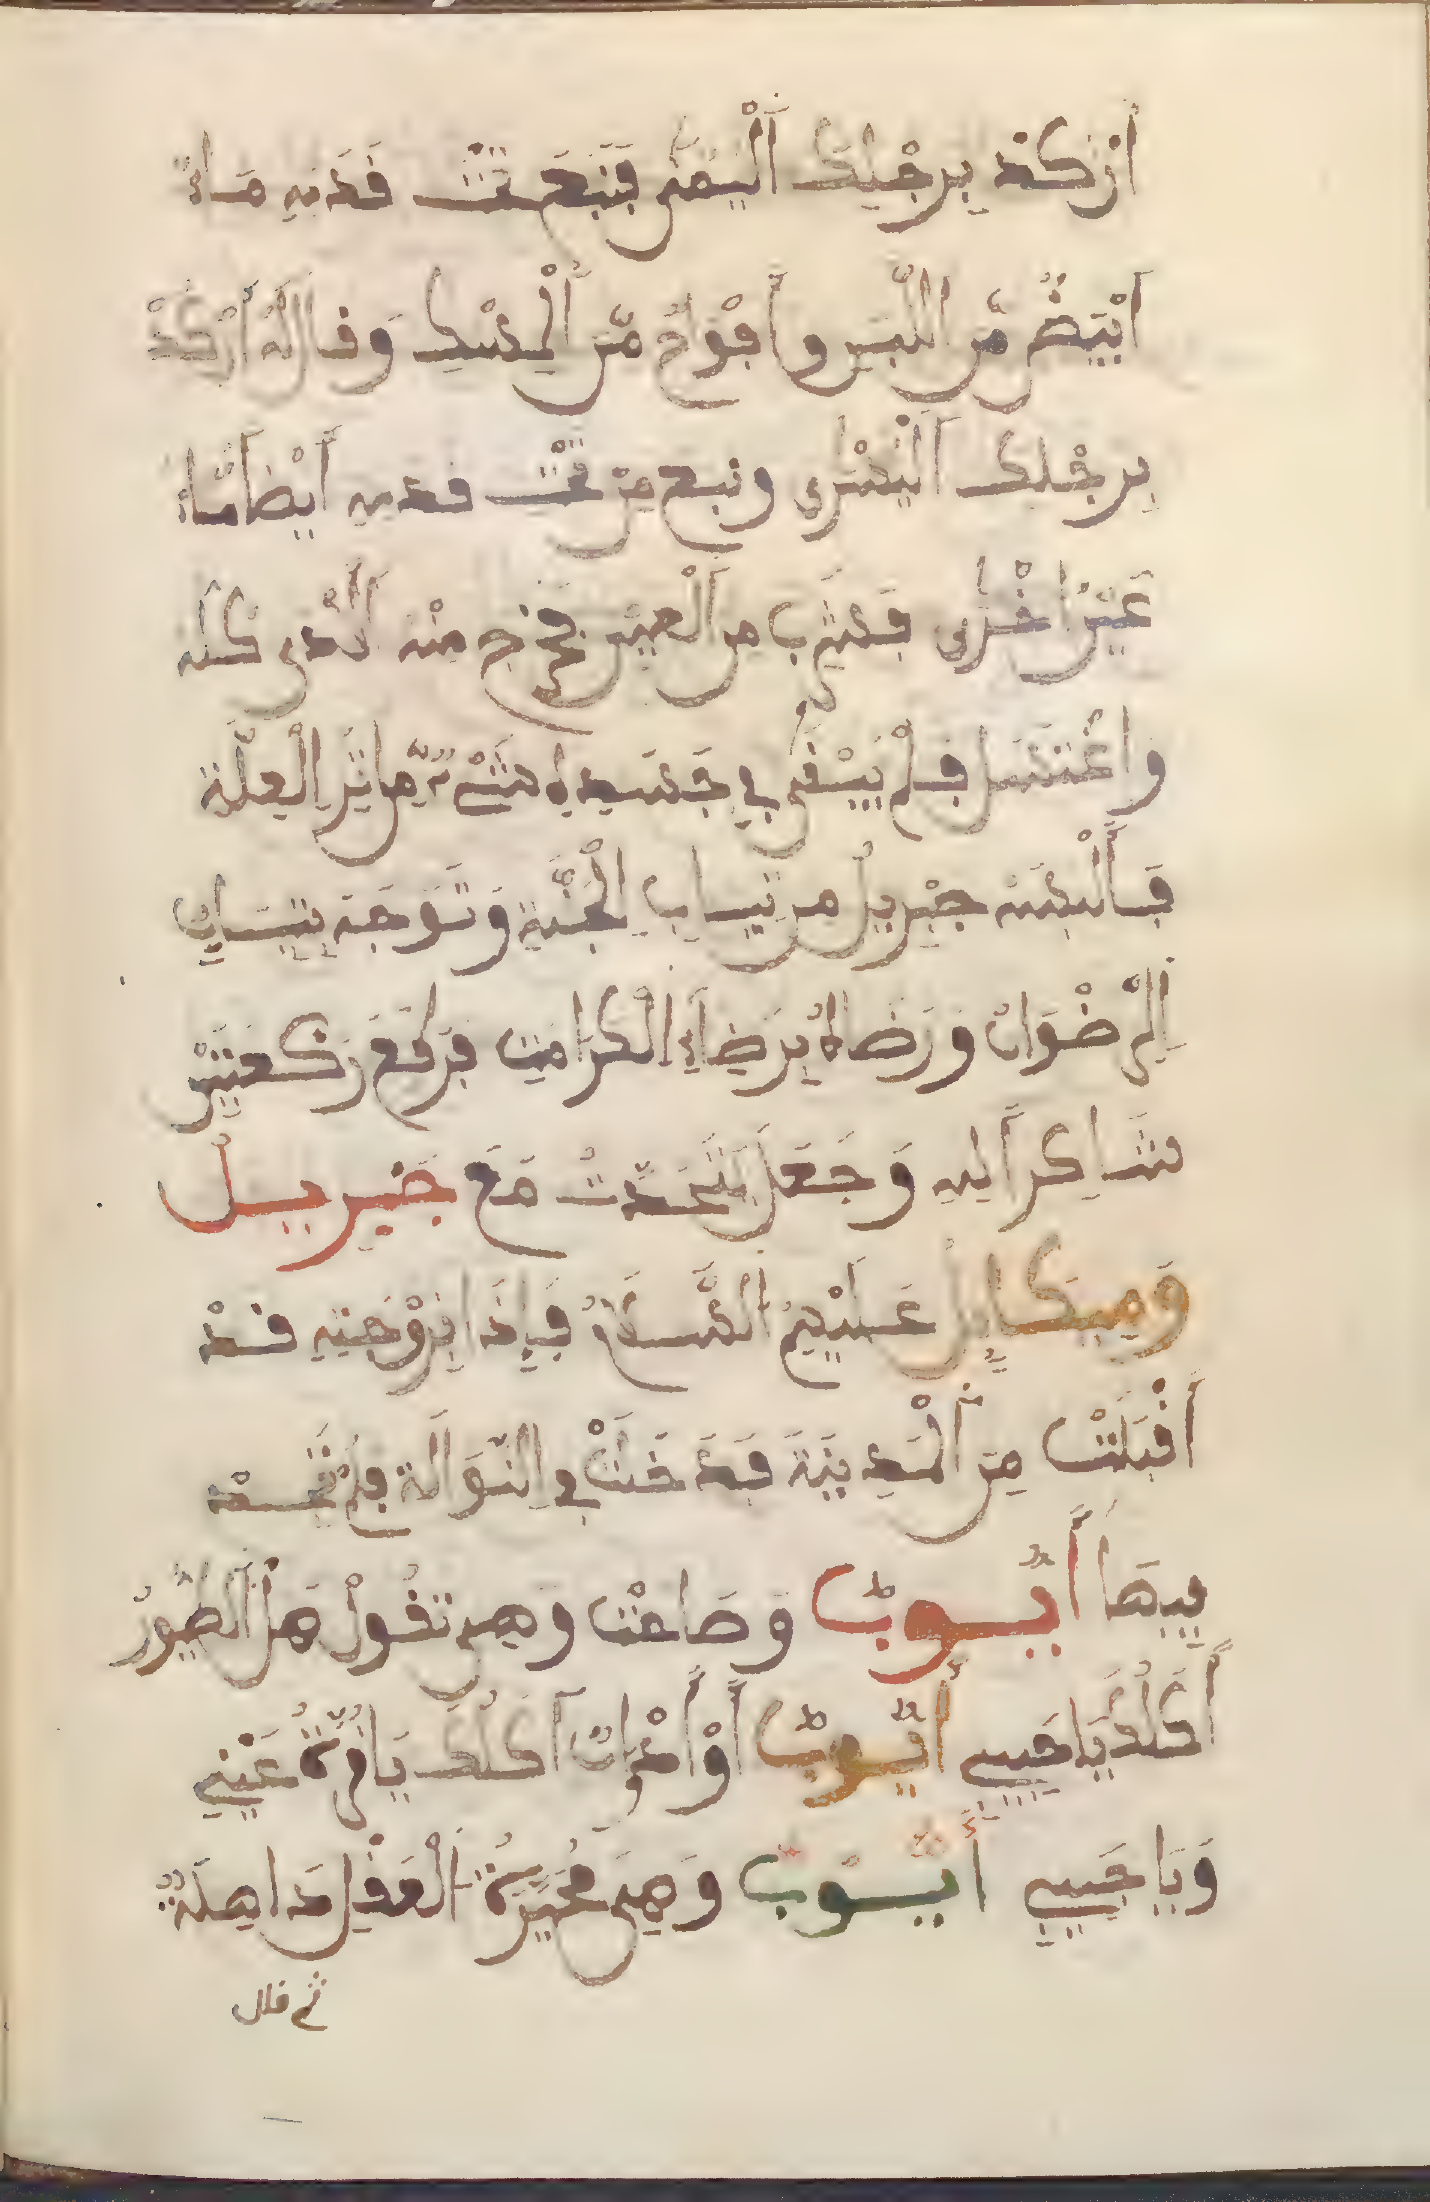 أركض برجلك اليمنى فنبعت تحت قدمه ماء
أبيض من اللبن وأفوح من المسك وقال له أركض
برجلك اليسرى ونبع من تحت قدمه أيضا ماء
عين اخرى فشرب من العين فخرج منه الدى كله
واغتسل فلم يبقى في جسده شىء من اثر العلة
فألبسه جبريل من تياب الجنة وتوجه بتاب
الرضوان ورضاه برضاء الكرامت فركع ركعتين
شاكرا لله وجعل يتحدث مع جبريل
وميكايل عليهم السلام فإذا بزوجته قد
أقبلت من المدينة فدخلت في النوالة فلم تجد
فيها أيوب وصاحت وهي تقول هل الطيور
أكلك يا حبيبي أيوب أو أخوات أكلك يا قرة عيني
ويا حبيبي أيوب وهي محيرة العقل داهلة
ثم قال